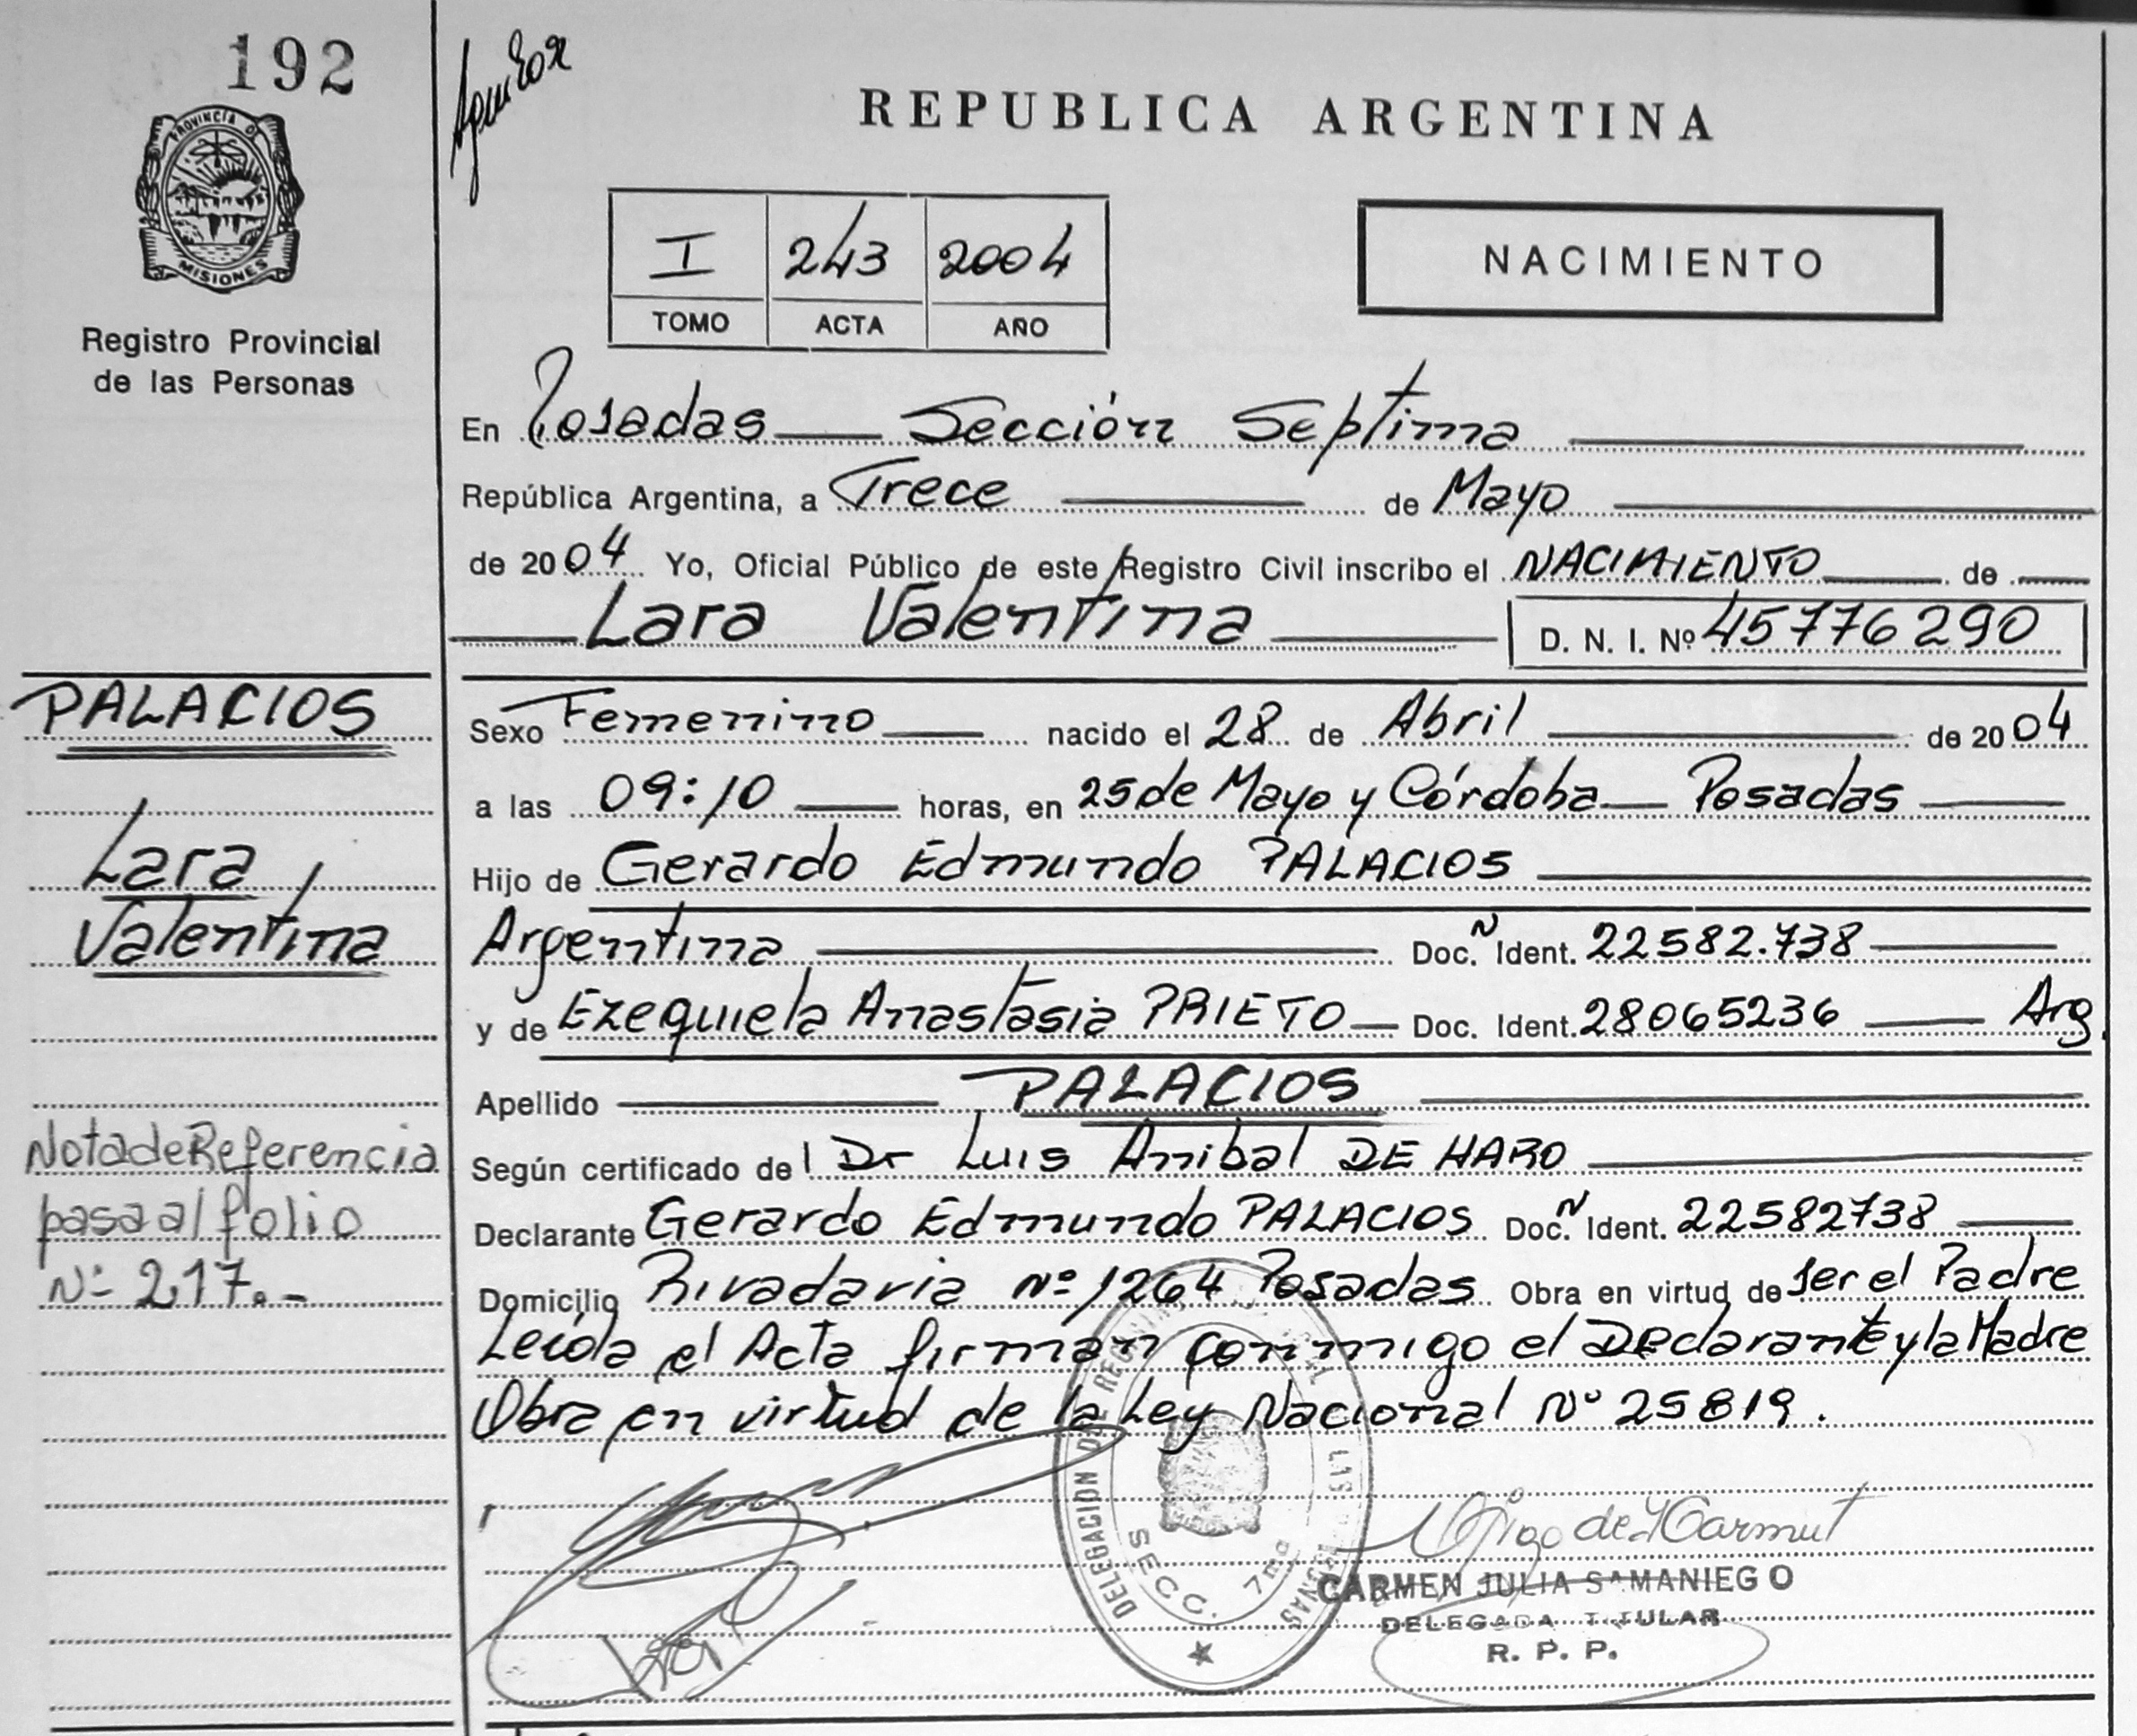 192
PROVINCIA D
MISIONES
Registro Provincial
de las Personas
REPUBLICA ARGENTINA
I 243 2004
TOMO ACTA AÑO
NACIMIENTO
En Posadas Sección Septima
República Argentina, a Trece de Mayo
de 2004 Yo, Oficial Público de este Registro Civil inscribo el NACIMIENTO de
Lara Valentina D. N. I. Nº 45776290
PALACIOS
Lara
Valentina
Nota de Referencia
pasa al folio
Nº 217.-
Sexo Femenino nacido el 28 de Abril de 2004
a las 09:10 horas, en 25 de Mayo y Córdoba Posadas
Hijo de Gerardo Edmundo PALACIOS
Argentina Doc. N Ident. 22582.738
y de Ezequiela Anastasia PRIETO Doc. Ident. 28065236 Arg.
Apellido PALACIOS
Según certificado de l Dr Luis Anibal DE HARO
Declarante Gerardo Edmundo PALACIOS Doc. N Ident. 22582738
Domicilio Rivadavia Nº 1264 Posadas Obra en virtud de ser el Padre
Leída el Acta firman conmigo el Declarante y la Madre
Obra en virtud de la Ley Nacional Nº 25819.
DELEGACION DE REG
LAS PERSONAS
SECC. 7ma
CARMEN JULIA SAMANIEGO
DELEGADA TITULAR
R. P. P.